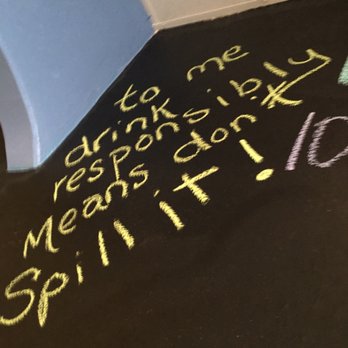 to me
drink
responsibly
Means don't
Spill it!
10